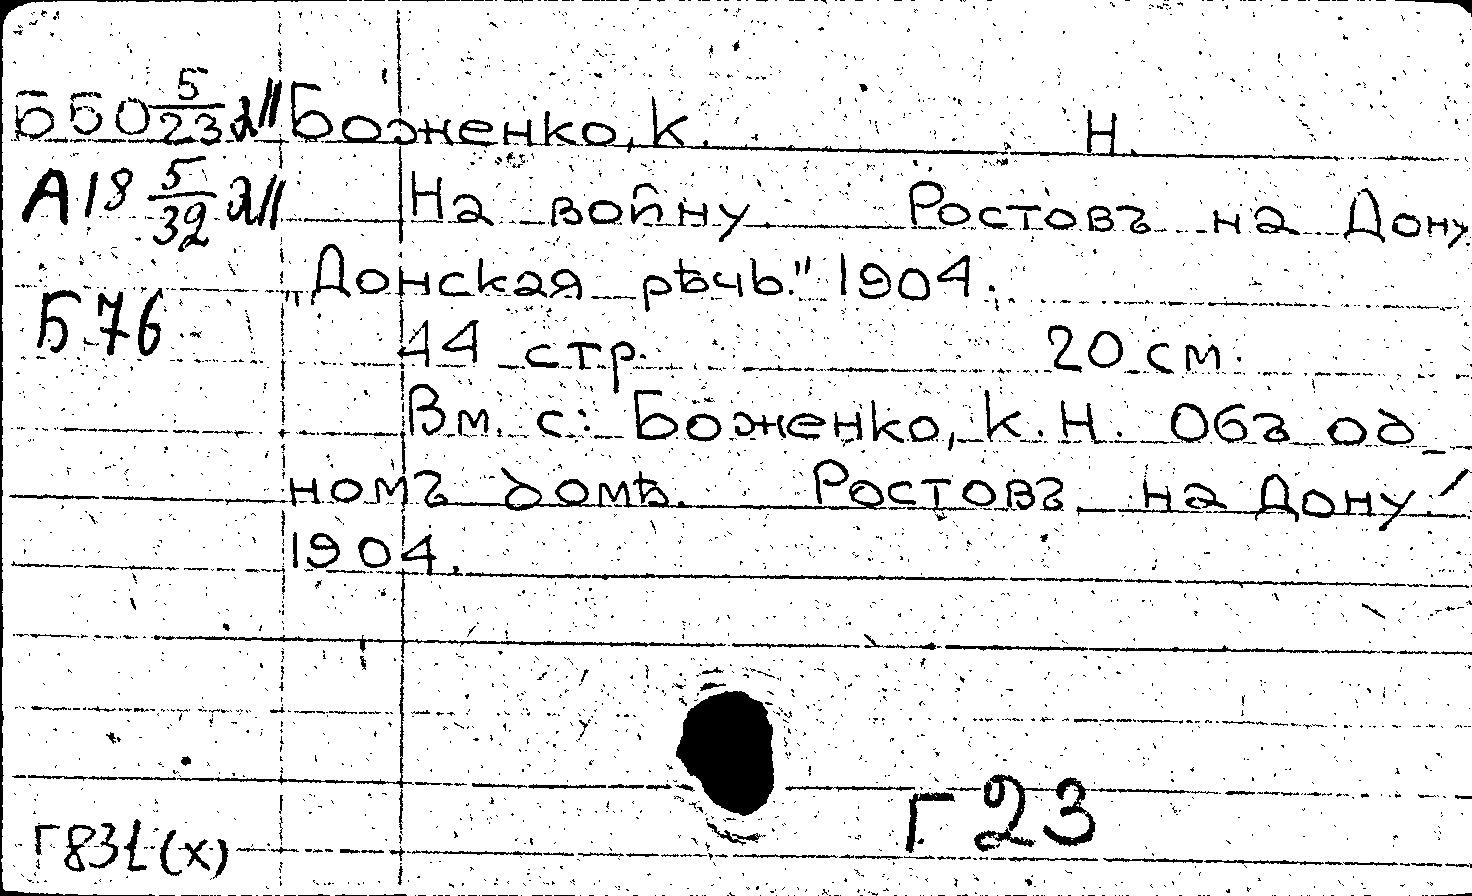 Б50 5/23 211 Боженко, К. Н.
А18 5/32 211 На войну. Ростовъ на Дону
„Донская рѣчь." 1904.
Б76
44 стр. 20 см.
Вм. с: Боженко, К. Н. Объ од
номъ домѣ. Ростовъ на Дону.
1904.
Г 23
Г831(х)